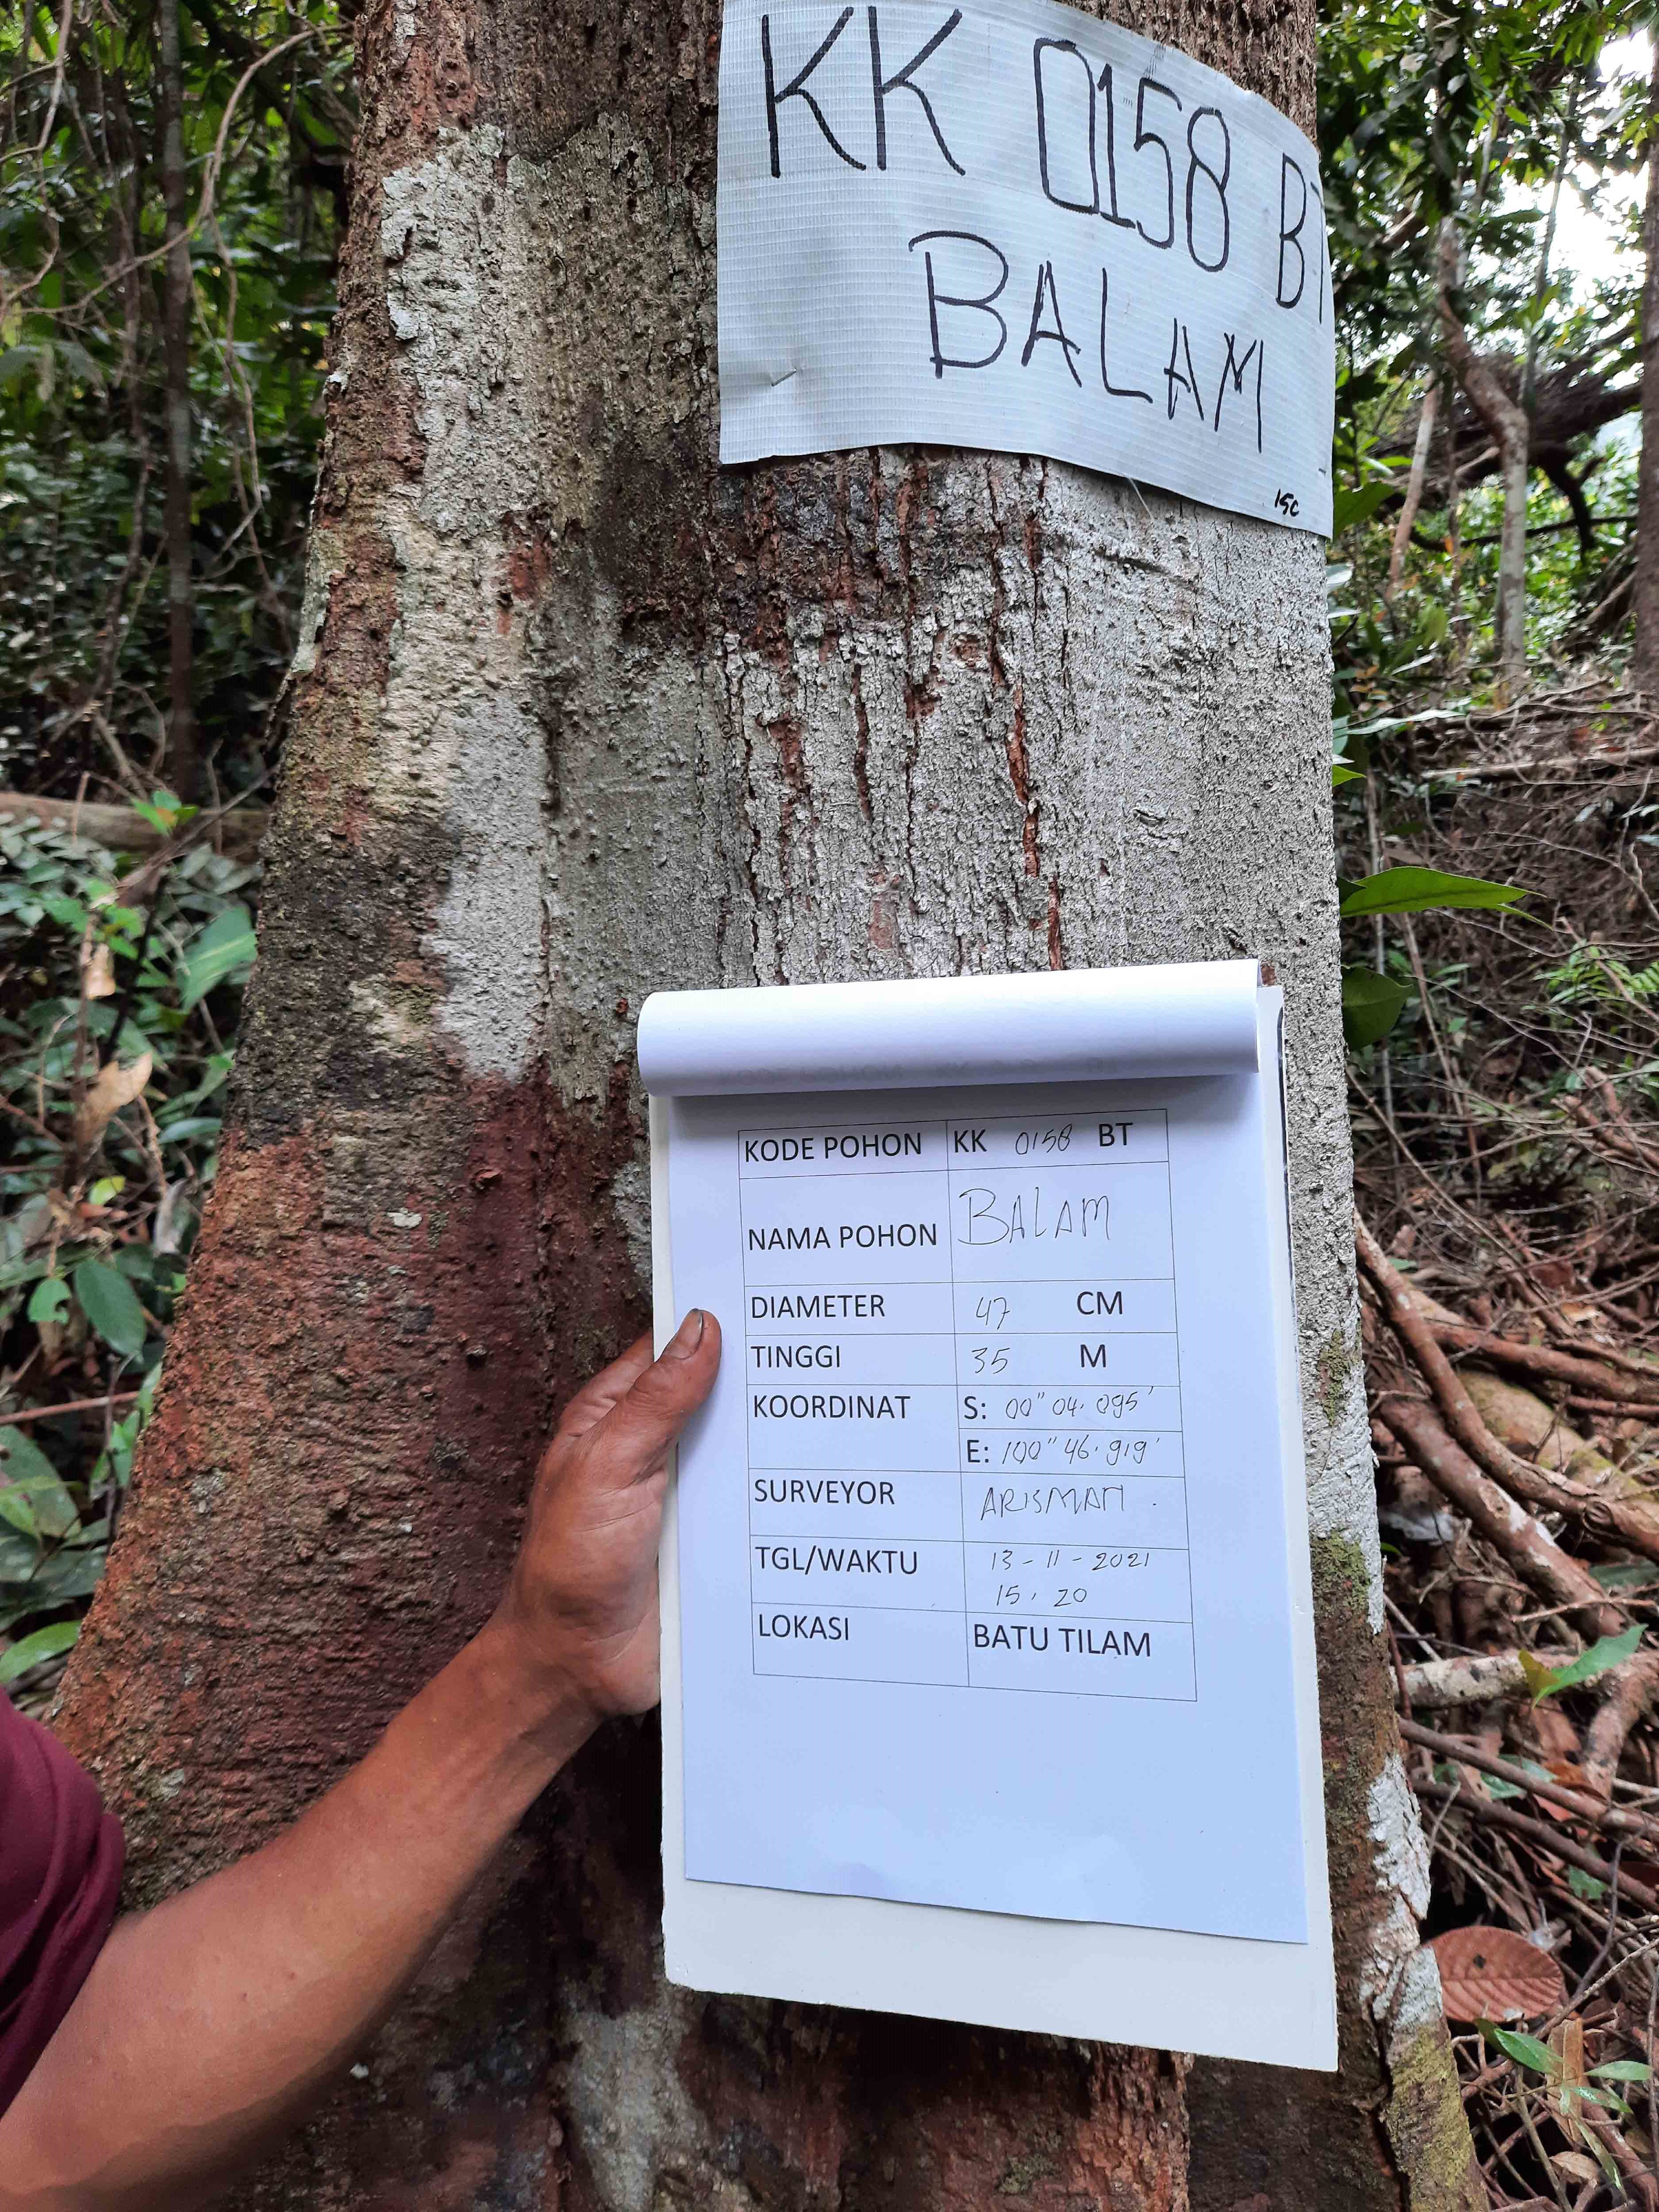 KK 0158 BT
BALAM
15C
KODE POHON KK 0158 BT
NAMA POHON BALAM
DIAMETER 47 CM
TINGGI 35 M
KOORDINAT S: 00" 04. 095'
E: 100" 46. 919'
SURVEYOR ARISMAN.
TGL/WAKTU 13-11-2021
15.20
LOKASI BATU TILAM